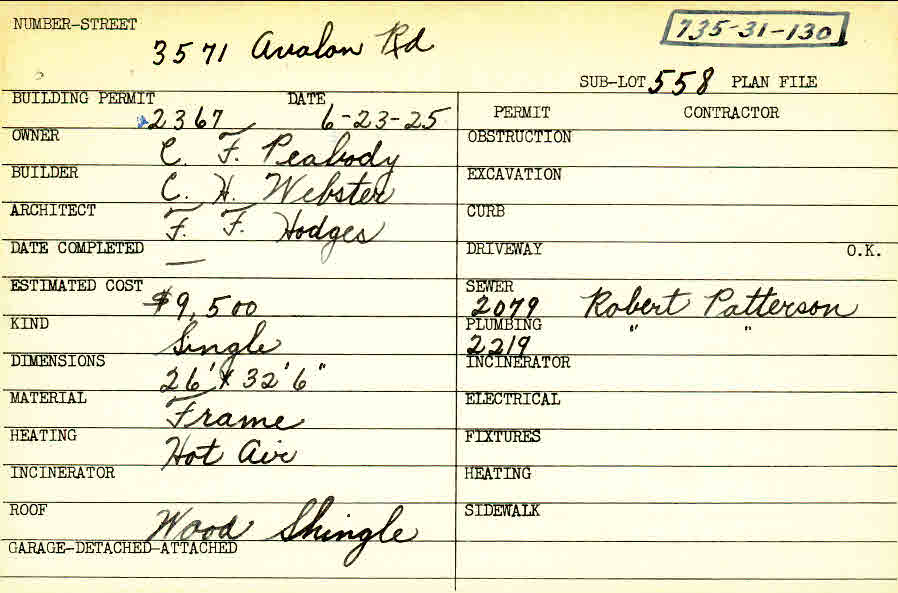 NUMBER-STREET
735-31-130
3571 Avalon Rd
SUB-LOT 558 PLAN FILE
BUILDING PERMIT DATE
2367 6-23-25
OWNER
C. F. Peabody
BUILDER
C. H. Webster
ARCHITECT
F. F. Hodges
DATE COMPLETED
—
ESTIMATED COST
$9,500
KIND
Single
DIMENSIONS
26' x 32'6"
MATERIAL
Frame
HEATING
Hot Air
INCINERATOR
ROOF
Wood Shingle
GARAGE-DETACHED-ATTACHED
PERMIT CONTRACTOR
OBSTRUCTION
EXCAVATION
CURB
DRIVEWAY O.K.
SEWER
2079 Robert Patterson
PLUMBING " "
2219
INCINERATOR
ELECTRICAL
FIXTURES
HEATING
SIDEWALK